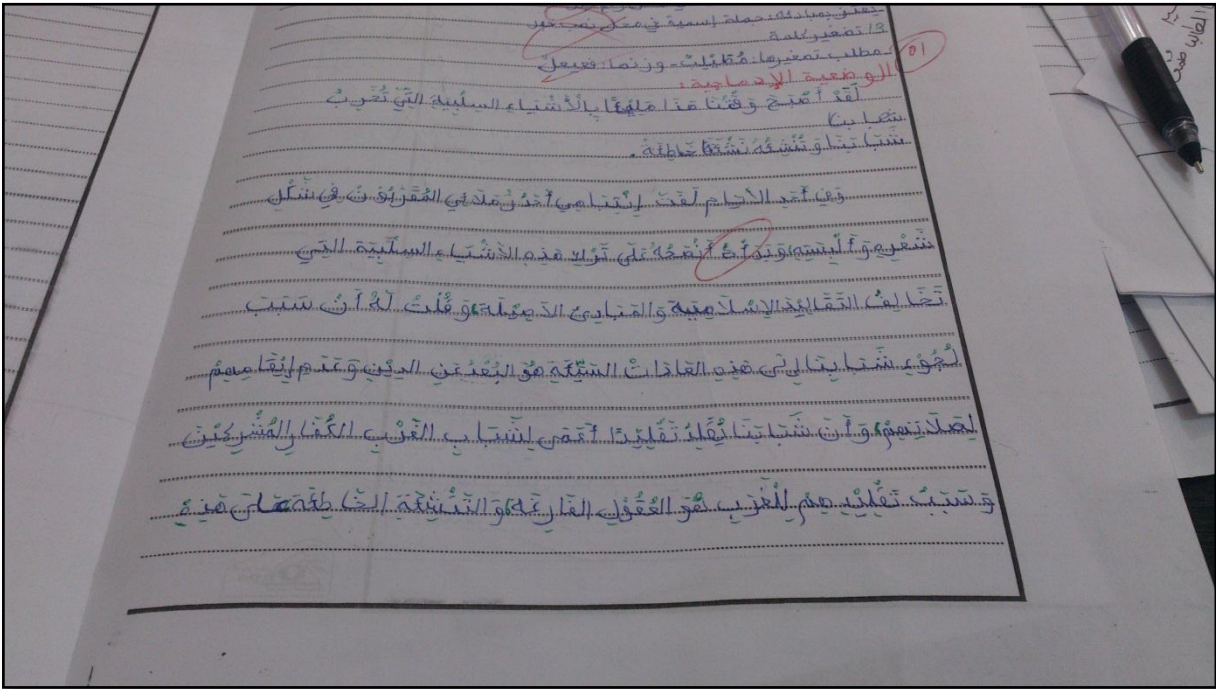 يعتز بمبادئه: جملة إسمية في محل نصب خبر
3/ تصغير كلمة
مطلب تصغيرها: مُطَيْلِبْ - وزنها: فعيعل
01
الوضعية الإدماجية:
لَقَدْ أَصْبَحَ وَقْتُنَا هَذَا مَلِيئًا بِالْأَشْيَاءِ السلْبِيَةِ التِّي تُخَرِبُ
شبابنا
شَبَابَنَا وَتُنْشِئُهُ نَشْئَةً خَاطِئَةً.
وَفِي أَحَدِ الأَيَامِ لَفَتَ إِنْتِبَاهِي أَحَدُ زُمَلَائِي المُقَرَبُونَ فِي شَكْلِ
شَعْرِهِ وَأَلْبِسَتِهِ وَبَدَأتُ أَنْصَحُهُ عَلَى تَرْكِ هَذِهِ الأَشْيَاءِ السلْبِيَةِ التِي
تُخَالِفُ التَقَالِيدَ الإِسْلَامِيَةِ وَالمَبَادِئِ الأَصِيلَةِ، وَقُلْتُ لَهُ أَنَ سَبَبَ
لُجُوْءِ شَبَابِنَا إِلَى هَذِهِ العَادَاتْ السَيِّئَةِ هُوَ البُعْدُ عَنِ الدِيْنِ وَعَدَمِ إِيْقَامِهِمْ
لِصَلَاتِهِمْ، وَأَنَ شَبَابَنَا يُقَلِدُ تَقْلِيْدًا أَعْمَى لِشَبَابِ الغَرْبِ الكُفَارِ المُشْرِكِيْنَ
وَسَبَبُ تَقْلِيْدِهِمْ لِلْغَرْبِ هُوَ العُقُوْلِ الفَارِغَةِ، وَالتَنْشِئَةِ الخَاطِئَةِ عَلَى هَذِهِ